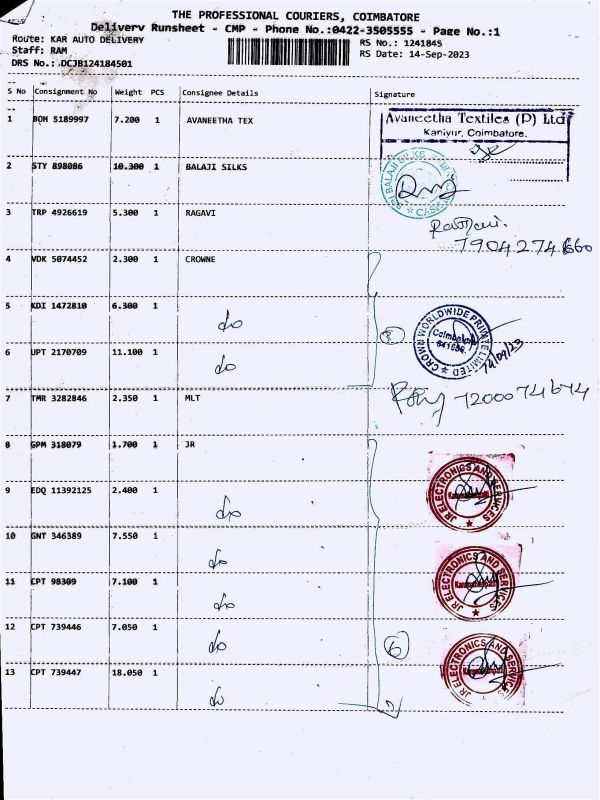 THE PROFESSIONAL COURIERS, COIMBATORE
Delivery Runsheet - CMP - Phone No.:0422-3505555 - Page No.:1
Route: KAR AUTO DELIVERY RS No.: 1241845
Staff: RAM RS Date: 14-Sep-2023
DRS No.: DCJB124184501
S No Consignment No Weight PCS Consignee Details Signature
1 BOM 5189997 7.200 1 AVANEETHA TEX
Avaneetha Textiles (P) Ltd
Kaniyur, Coimbatore.
2 STY 898086 10.300 1 BALAJI SILKS
SRI BALAJI SILKS
3 TRP 4926619 5.300 1 RAGAVI
7904274660
4 VDK 5074452 2.300 1 CROWNE
5 KDI 1472810 6.300 1 do
CROWN WORLDWIDE PRIVATE LIMITED
Coimbatore
14/09/23
6 UPT 2170709 11.100 1 do
7 TMR 3282846 2.350 1 MLT
7200074674
8 GPM 318079 1.700 1 JR
JR ELECTRONICS AND SERVICES
9 EDQ 11392125 2.400 1 do
10 GNT 346389 7.550 1 do
JR ELECTRONICS AND SERVICES
11 CPT 98309 7.100 1 do
12 CPT 739446 7.050 1 do
6
JR ELECTRONICS AND SERVICES
13 CPT 739447 18.050 1 do